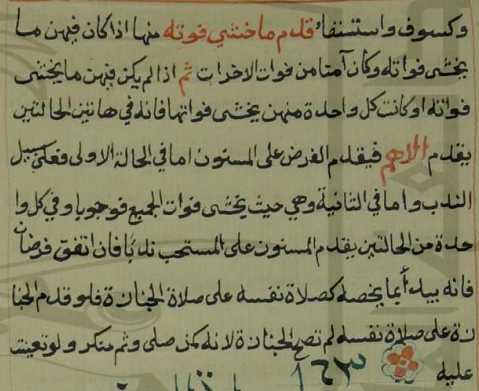 وكسوف واستسقاء قدم ما خشي فوته منها اذا كان فيهن ما
يخشى فواته وكان آمنا من فوات الاخرات ثم اذا لم يكن فيهن ما يخشى
فواته او كانت كل واحدة منهن يخشى فواتها فانه في هاتين الحالتين
يقدم الاهم فيقدم الفرض على المسنون اما في الحالة الاولى فعلى سبيل
الندب واما في الثانية وهي حيث يخشى فوات الجميع فوجوبا وفي كل وا
حدة من الحالتين يقدم المسنون على المستحب ندبا فان اتفق فرضان
فانه يبدأ بما يخصه كصلاة نفسه على صلاة الجنازة فلو قدم الجنا
زة على صلاة نفسه لم تصح الجنازة لانه كمن صلى وثم منكر ولو تعينت
عليه ١٦٣